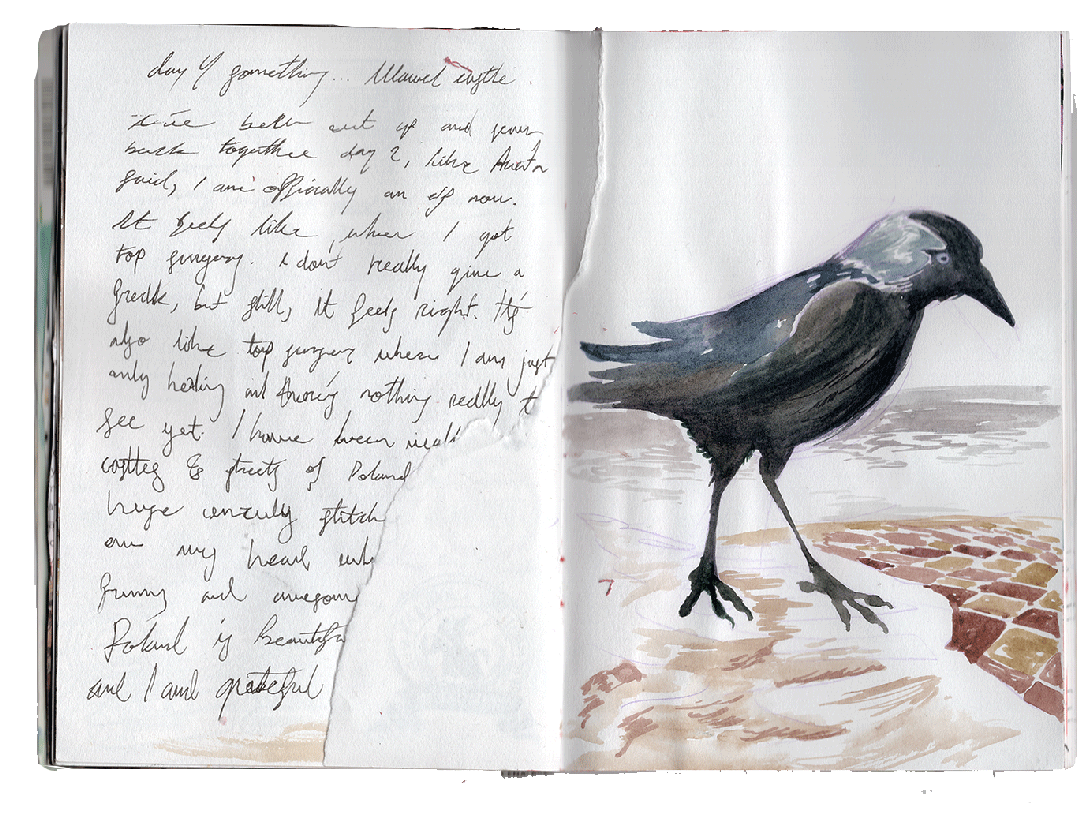 day 4 something... Wawel castle
been cut up and sewn
back together day 2, like Aurat
said, I am officially an elf now.
It feels like when I got
top surgery. I don't really give a
freak, but still, it feels right. It's
also like top surgery where I am just
only healing and there's nothing really t
see yet. I have been
castles & streets of Poland
huge unruly stitch
on my head
funny and awesome
Poland is beautiful
and I am grateful